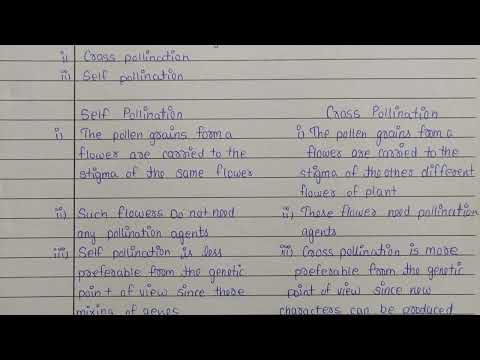 i) Cross pollination
ii) Self pollination
Self Pollination
i) The pollen grains form a
flower are carried to the
stigma of the same flower
ii) Such flowers Do not need
any pollination agents
iii) Self pollination is less
preferable from the genetic
point of view since there
mixing of genes
Cross Pollination
i) The pollen grains form a
flower are carried to the
stigma of the other different
flower of plant
ii) These flower need pollination
agents
iii) Cross pollination is more
preferable from the genetic
point of view since new
characters can be produced